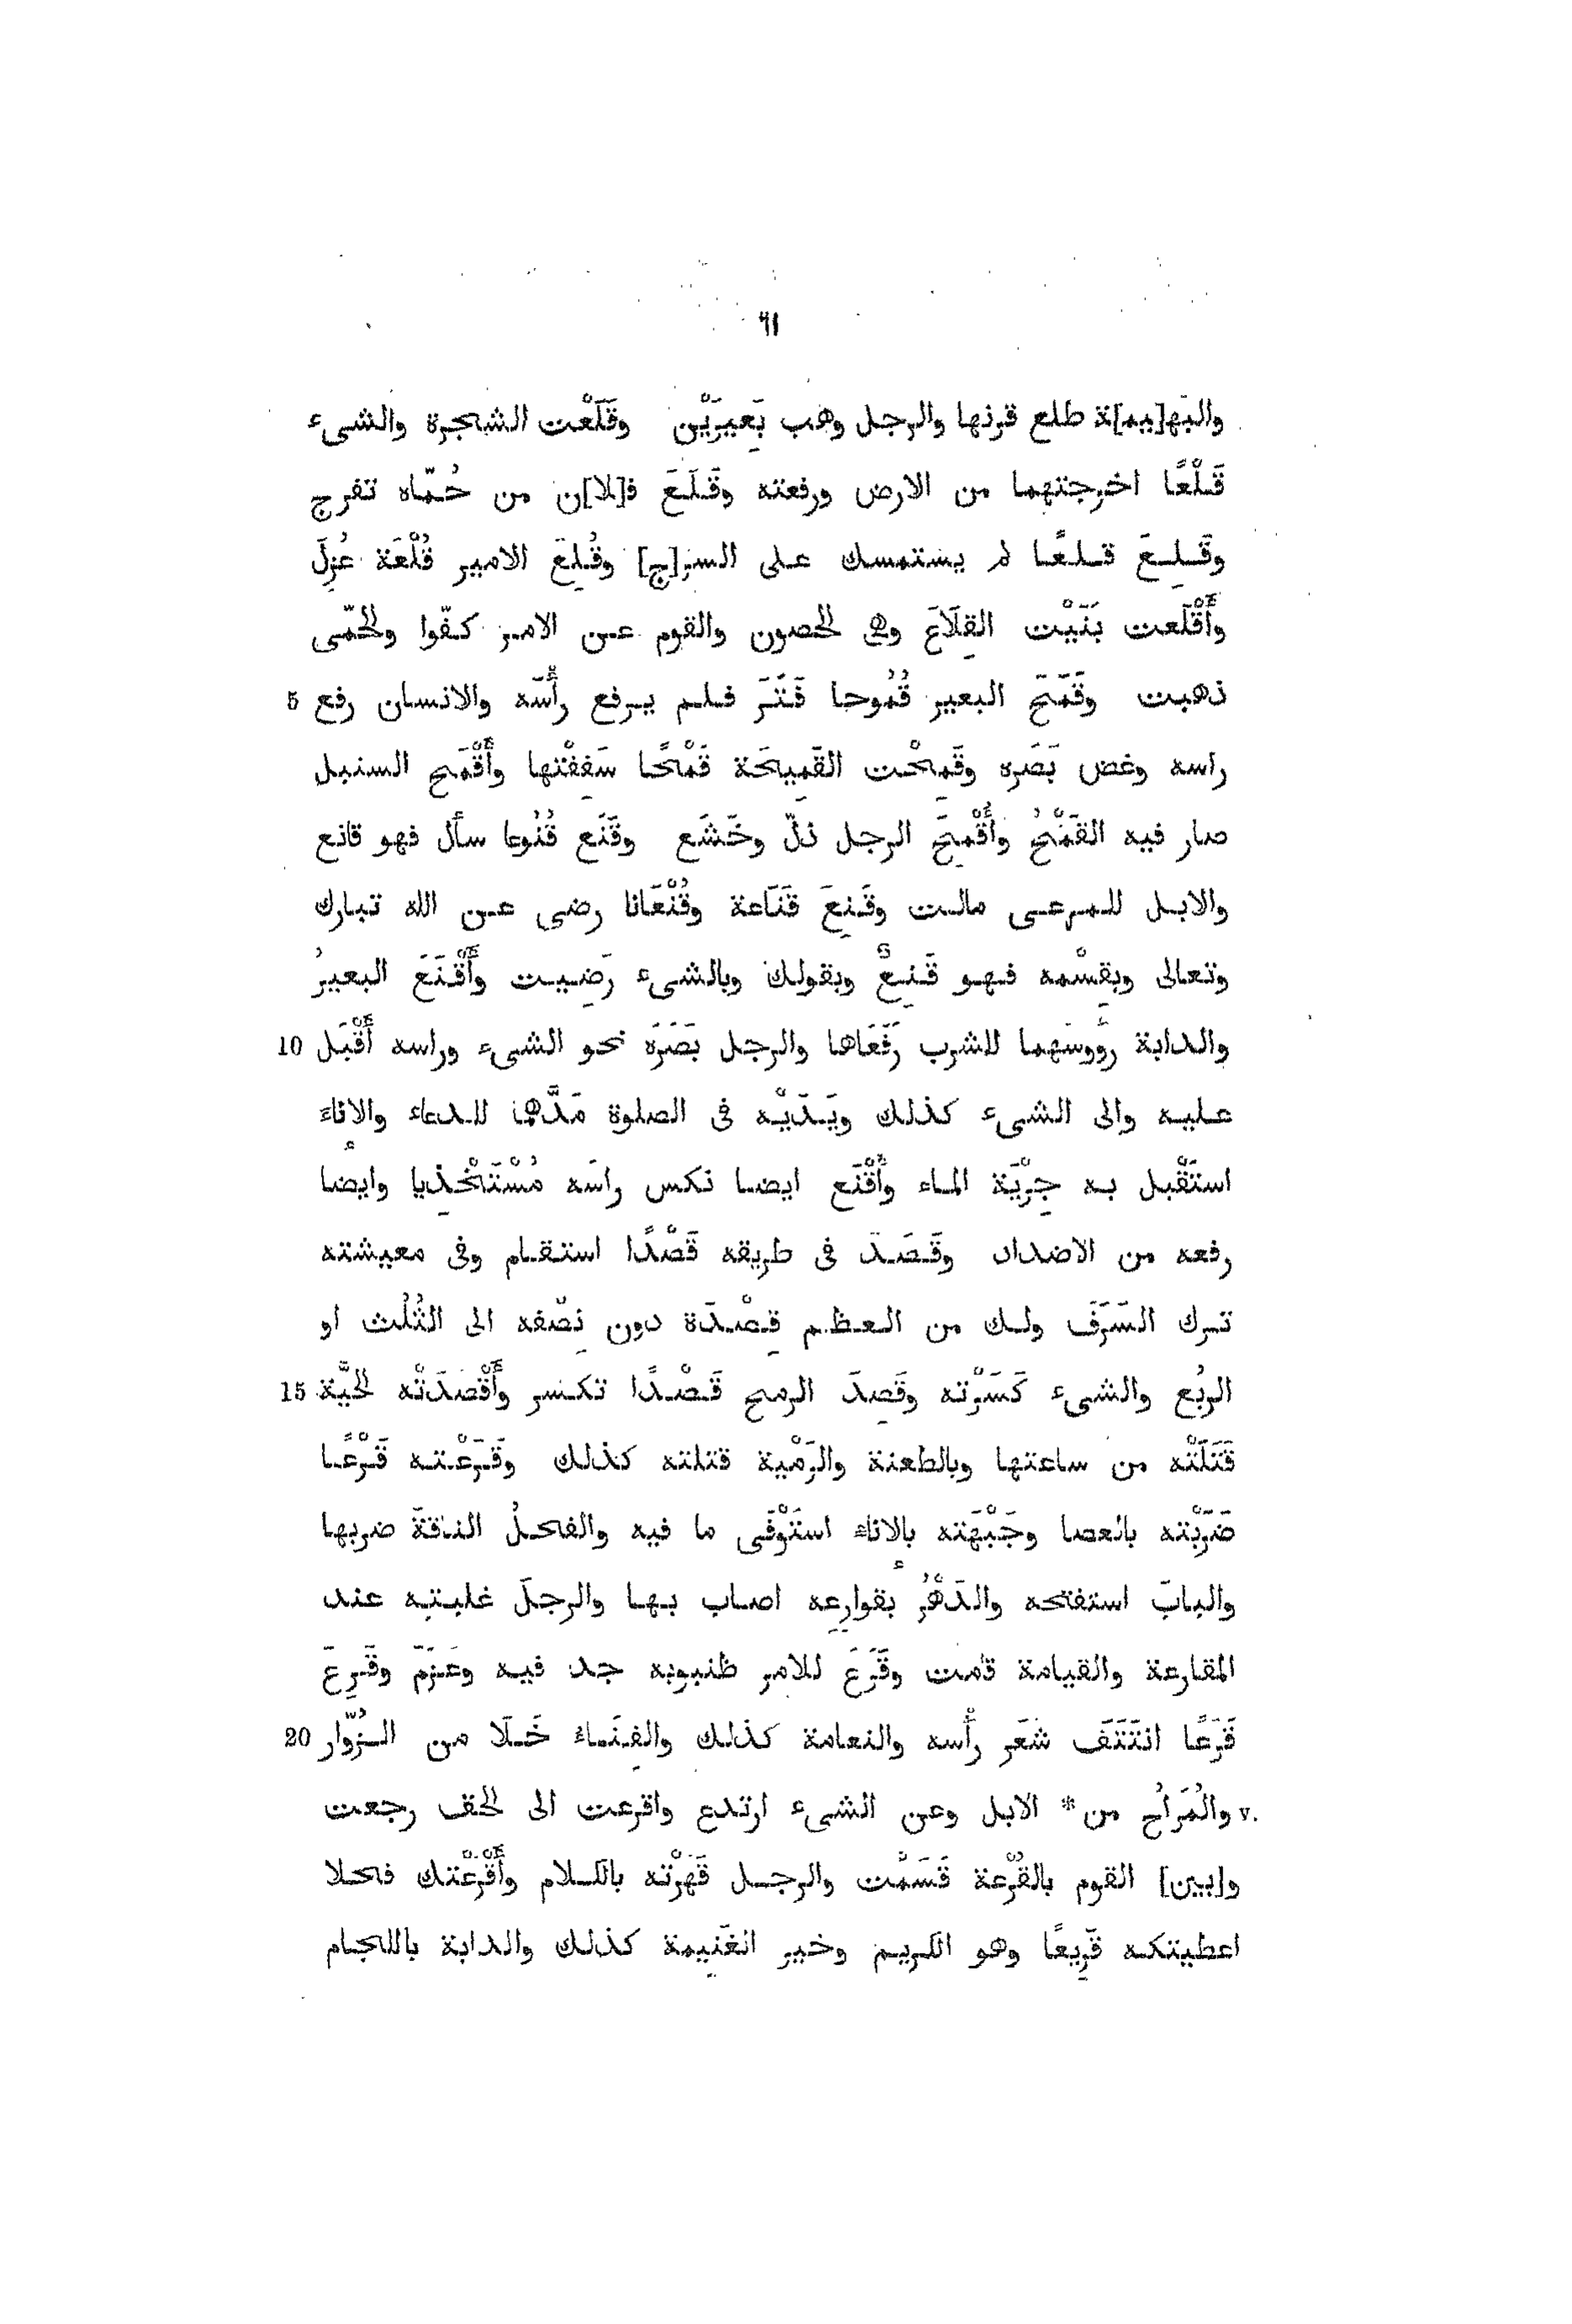 ٦١
والبَه[يم]ة طلع قرنها والرجل وهب بَعِيرَيْن وقَلَعْت الشجرة والشىء
قَلْعًا اخرجتهما من الارض ورفعته وقَلَعَ ف[لا]ن من حُمّاه تفرج
وقَلِعَ قلعًا لم يستمسك على السر[ج] وقُلِعَ الامير قُلْعَة عُزِلَ
وأَقْلَعت بَنَيْت القِلَاعَ وهى الحصون والقوم عن الامر كفّوا والحُمّى
ذهبت وقَمَحَ البعير قُمُوحا فَتَرَ فلم يرفع رأْسَه والانسان رفع 5
راسه وغض بَصَره وقَمِحْت القَمِيحَة قَمْحًا سَفِفْتها وأَقْمَح السنبل
صار فيه القَمْحُ وأُقْمِحَ الرجل ذلّ وخَشَع وقَنَع قُنُوعا سأل فهو قانع
والابل للمرعى مالت وقَنِعَ قَنَاعة وقُنْعَانا رضى عن الله تبارك
وتعالى وبقِسْمه فهو قَنِعٌ وبقولك وبالشىء رَضِيت وأَقْنَعَ البعيرُ
والدابة رُؤوسَهما للشرب رَفَعَاها والرجل بَصَرَه نحو الشىء وراسه أَقْبَل 10
عليه والى الشىء كذلك ويَدَيْه فى الصلوة مَدَّهما للدعاء والاناءَ
استَقْبل به جِرْيَة الماء وأَقْنَع ايضا نكس راسَه مُسْتَخْذِيا وايضا
رفعه من الاضداد وقَصَدَ فى طريقه قَصْدًا استقام وفى معيشته
ترك السَرَفَ ولك من العظم قِصْدَة دون نِصْفه الى الثُلُث او
الربُع والشىء كَسَرْته وقَصِدَ الرمح قَصْدًا تكسر وأَقْصَدَتْه الحيَّة 15
قَتَلَتْه من ساعتها وبالطعنة والرَمْية قتلته كذلك وقَرَعْته قَرْعًا
ضَرَبْته بالعصا وجَبْهَته بالاناءِ استَوْفَى ما فيه والفحلُ الناقةَ ضربها
والبابَ استفتحه والدَهْرُ بقوارِعِه اصاب بها والرجلَ غلبته عند
المقارعة والقيامة قامت وقَرَعَ للامر ظنبوبه جد فيه وعَزَمَ وقَرِعَ
قَرَعًا انتَتَفَ شعَر رأْسه والنعامة كذلك والفِنَاءُ خَلَا من الزُوّار 20
٧٠ والمُرَاحُ من * الابل وعن الشىء ارتدع واقرعت الى الحق رجعت
و[بين] القوم بالقُرْعة قَسَمْت والرجل قَهَرْته بالكلام وأَقْرَعْتك فحلا
اعطيتكه قَرِيعًا وهو الكريم وخير الغَنِيمة كذلك والدابة باللجام